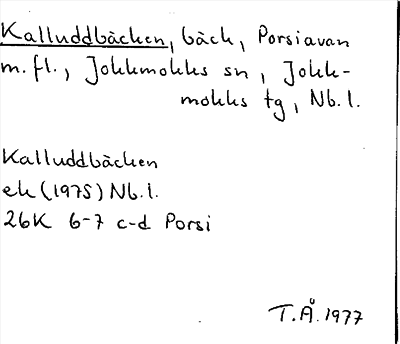 Kalluddbäcken, bäck, Porsiavan
m.fl., Jokkmokks sn, Jokk-
mokks tg, Nb.l.
Kalluddbäcken
ek (1975) Nb.l.
26K 6-7 c-d Porsi
T.Å. 1977